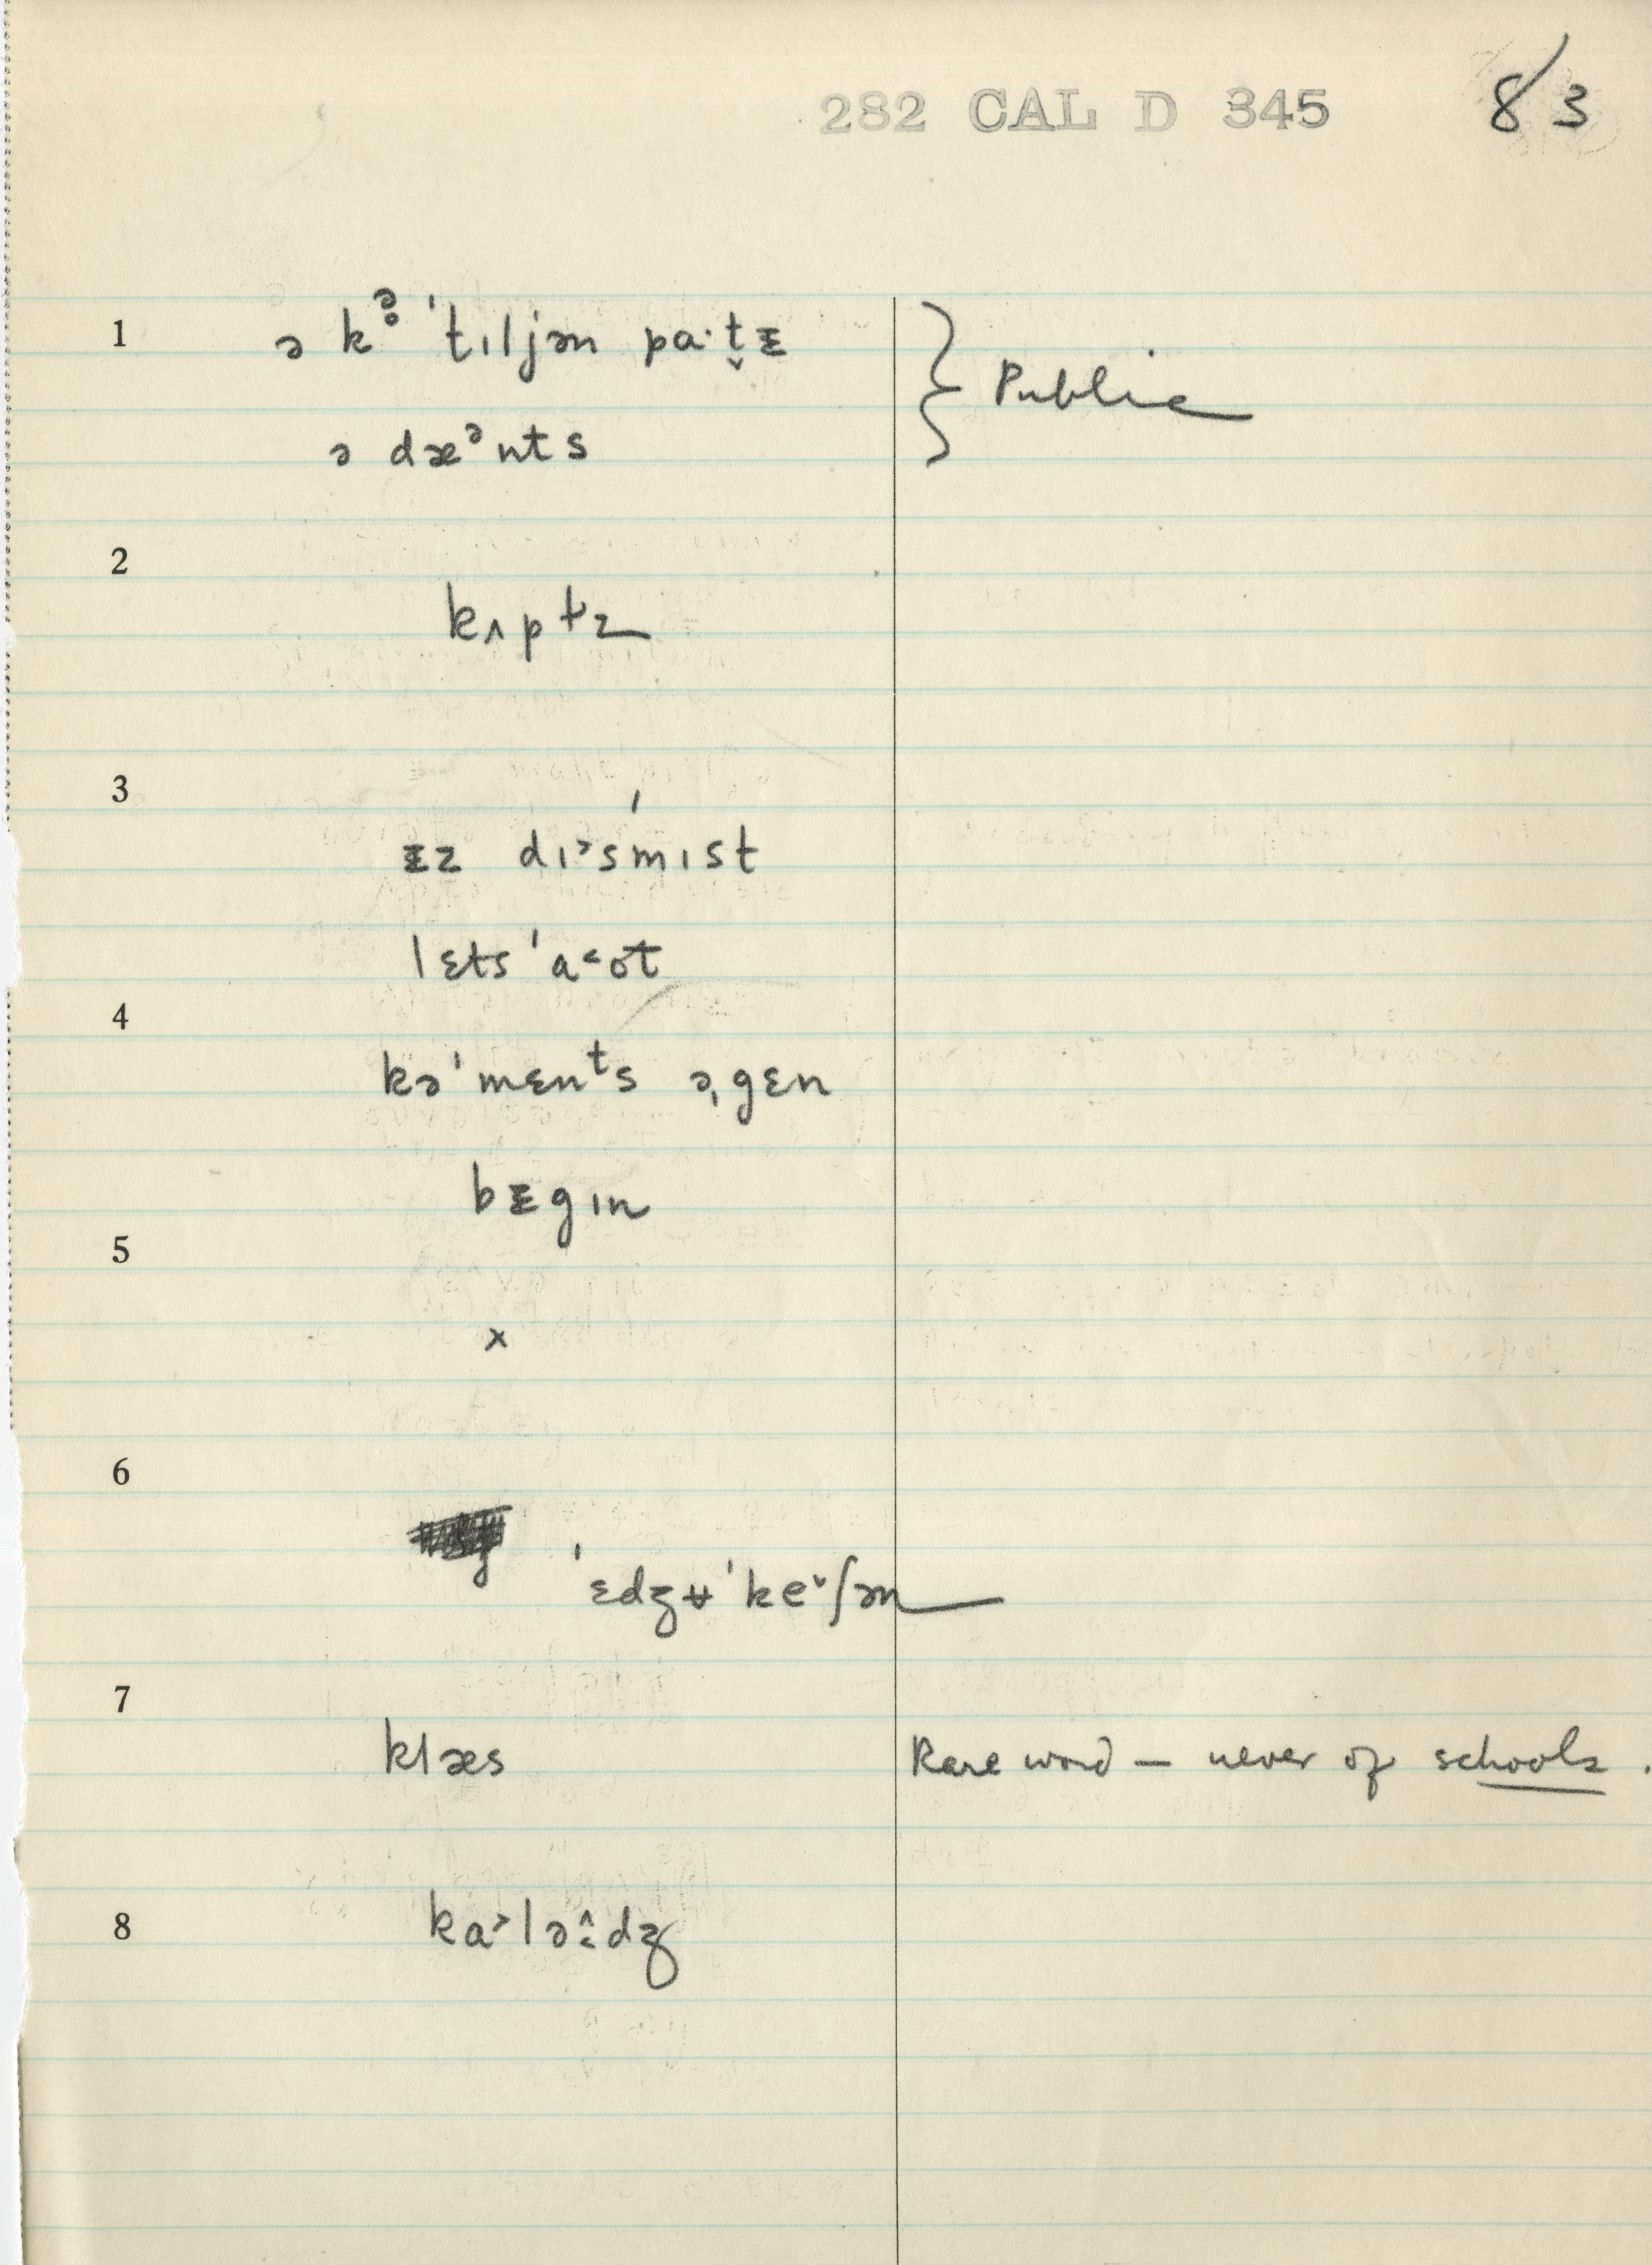 282 CAL D 345 83
1 ə kə̥ ˈtɪljən pa·t̬ᵻ
Public
ə dæᵊnts
2
kʌptɪ
3
ᵻz dɪ˃sˈmɪst
lɛts ˈa˂ʊt
4
kəˈmɛnᵗs əˌgɛn
bᵻgɪn
5
x
6
ˈɛdʒʉˈke˅ʃən
7
klæs Rare word — never of schools.
8 ka˃lə̭dʒ